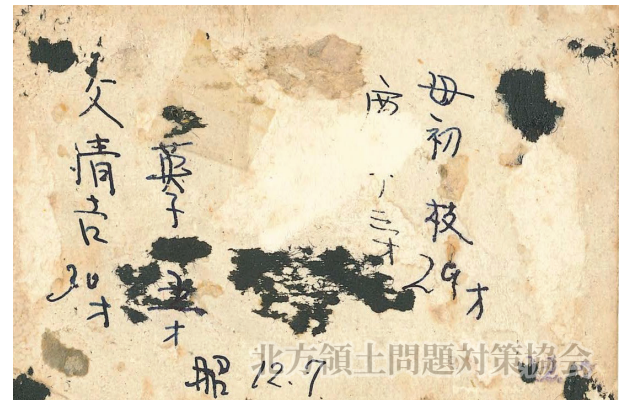 母初枝29才
才
英子 五才
父清吉30才
昭12.7
北方領土問題対策協会